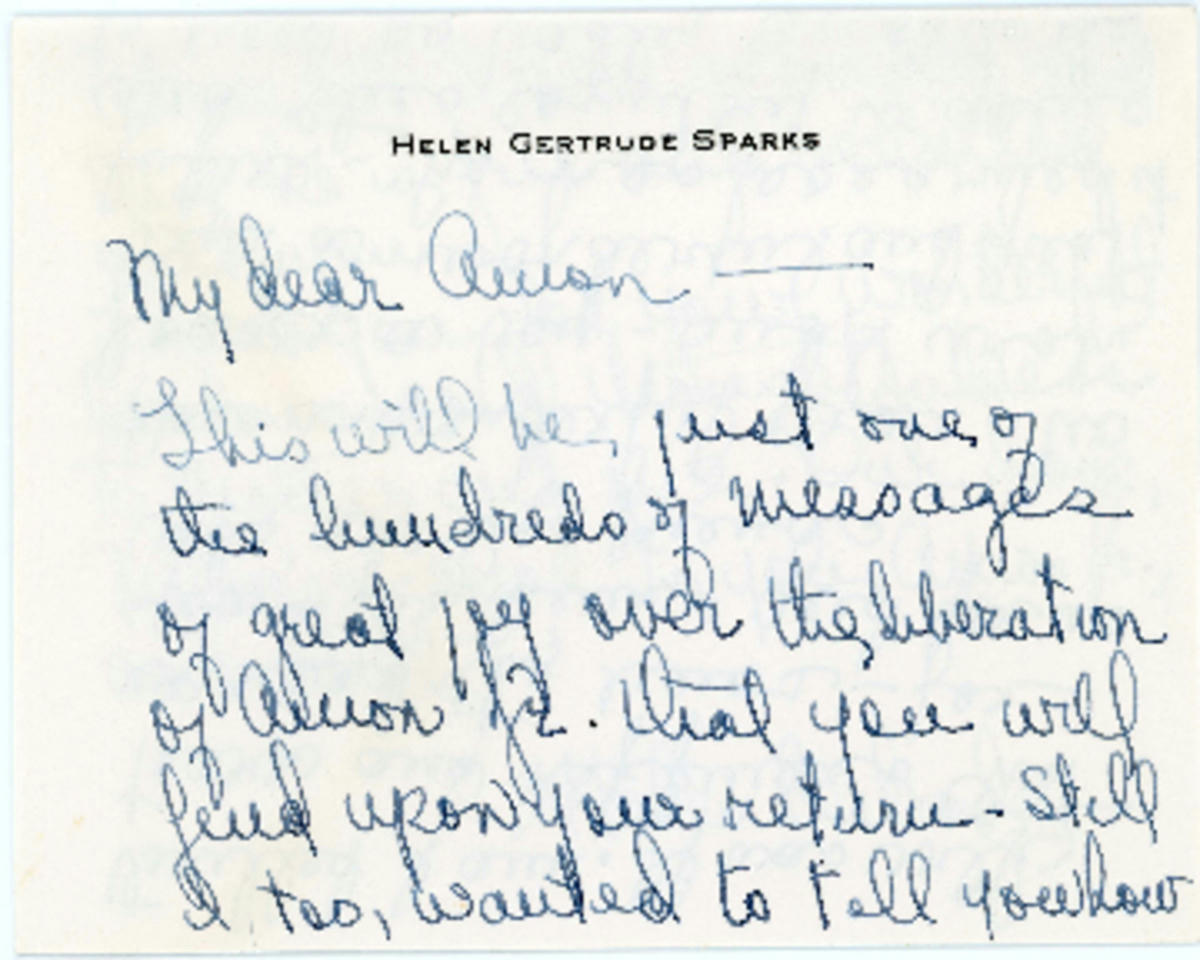 HELEN GERTRUDE SPARKS
My dear Amon —
This will be just one of
the hundreds of messages
of great joy over the liberation
of Amon Jr. that you will
find upon your return - Still
I too, wanted to tell you how